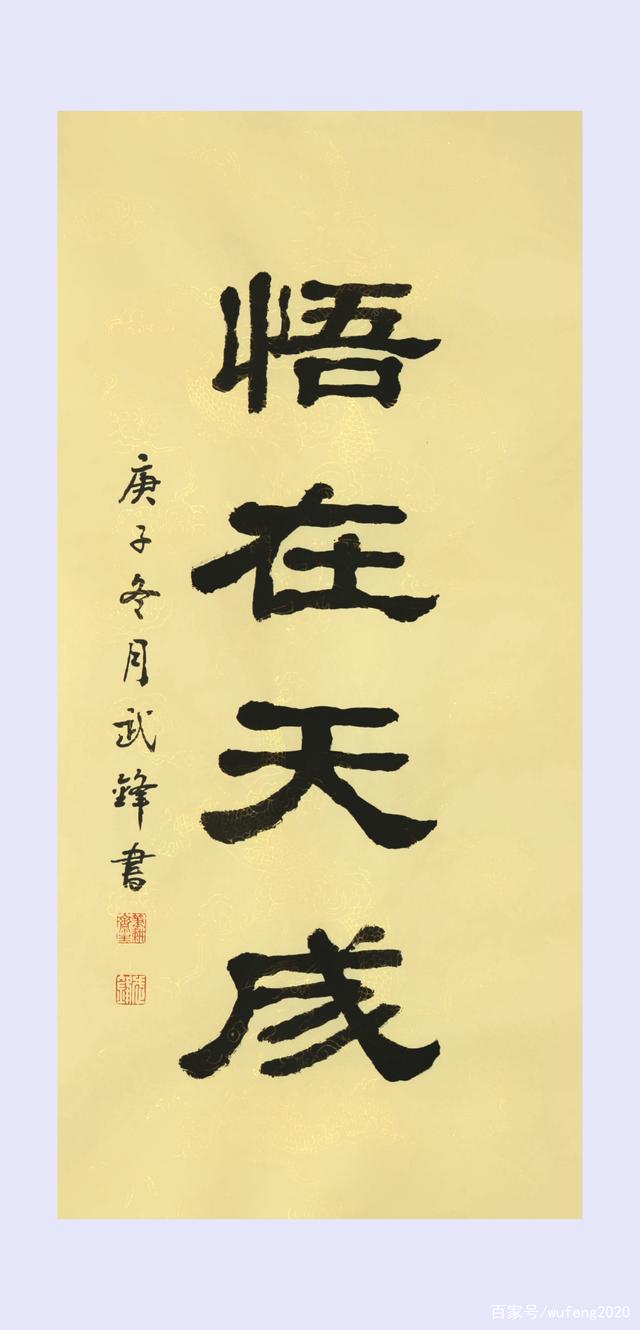 悟在天成
庚子冬月武鋒書
百家号/wufeng2020